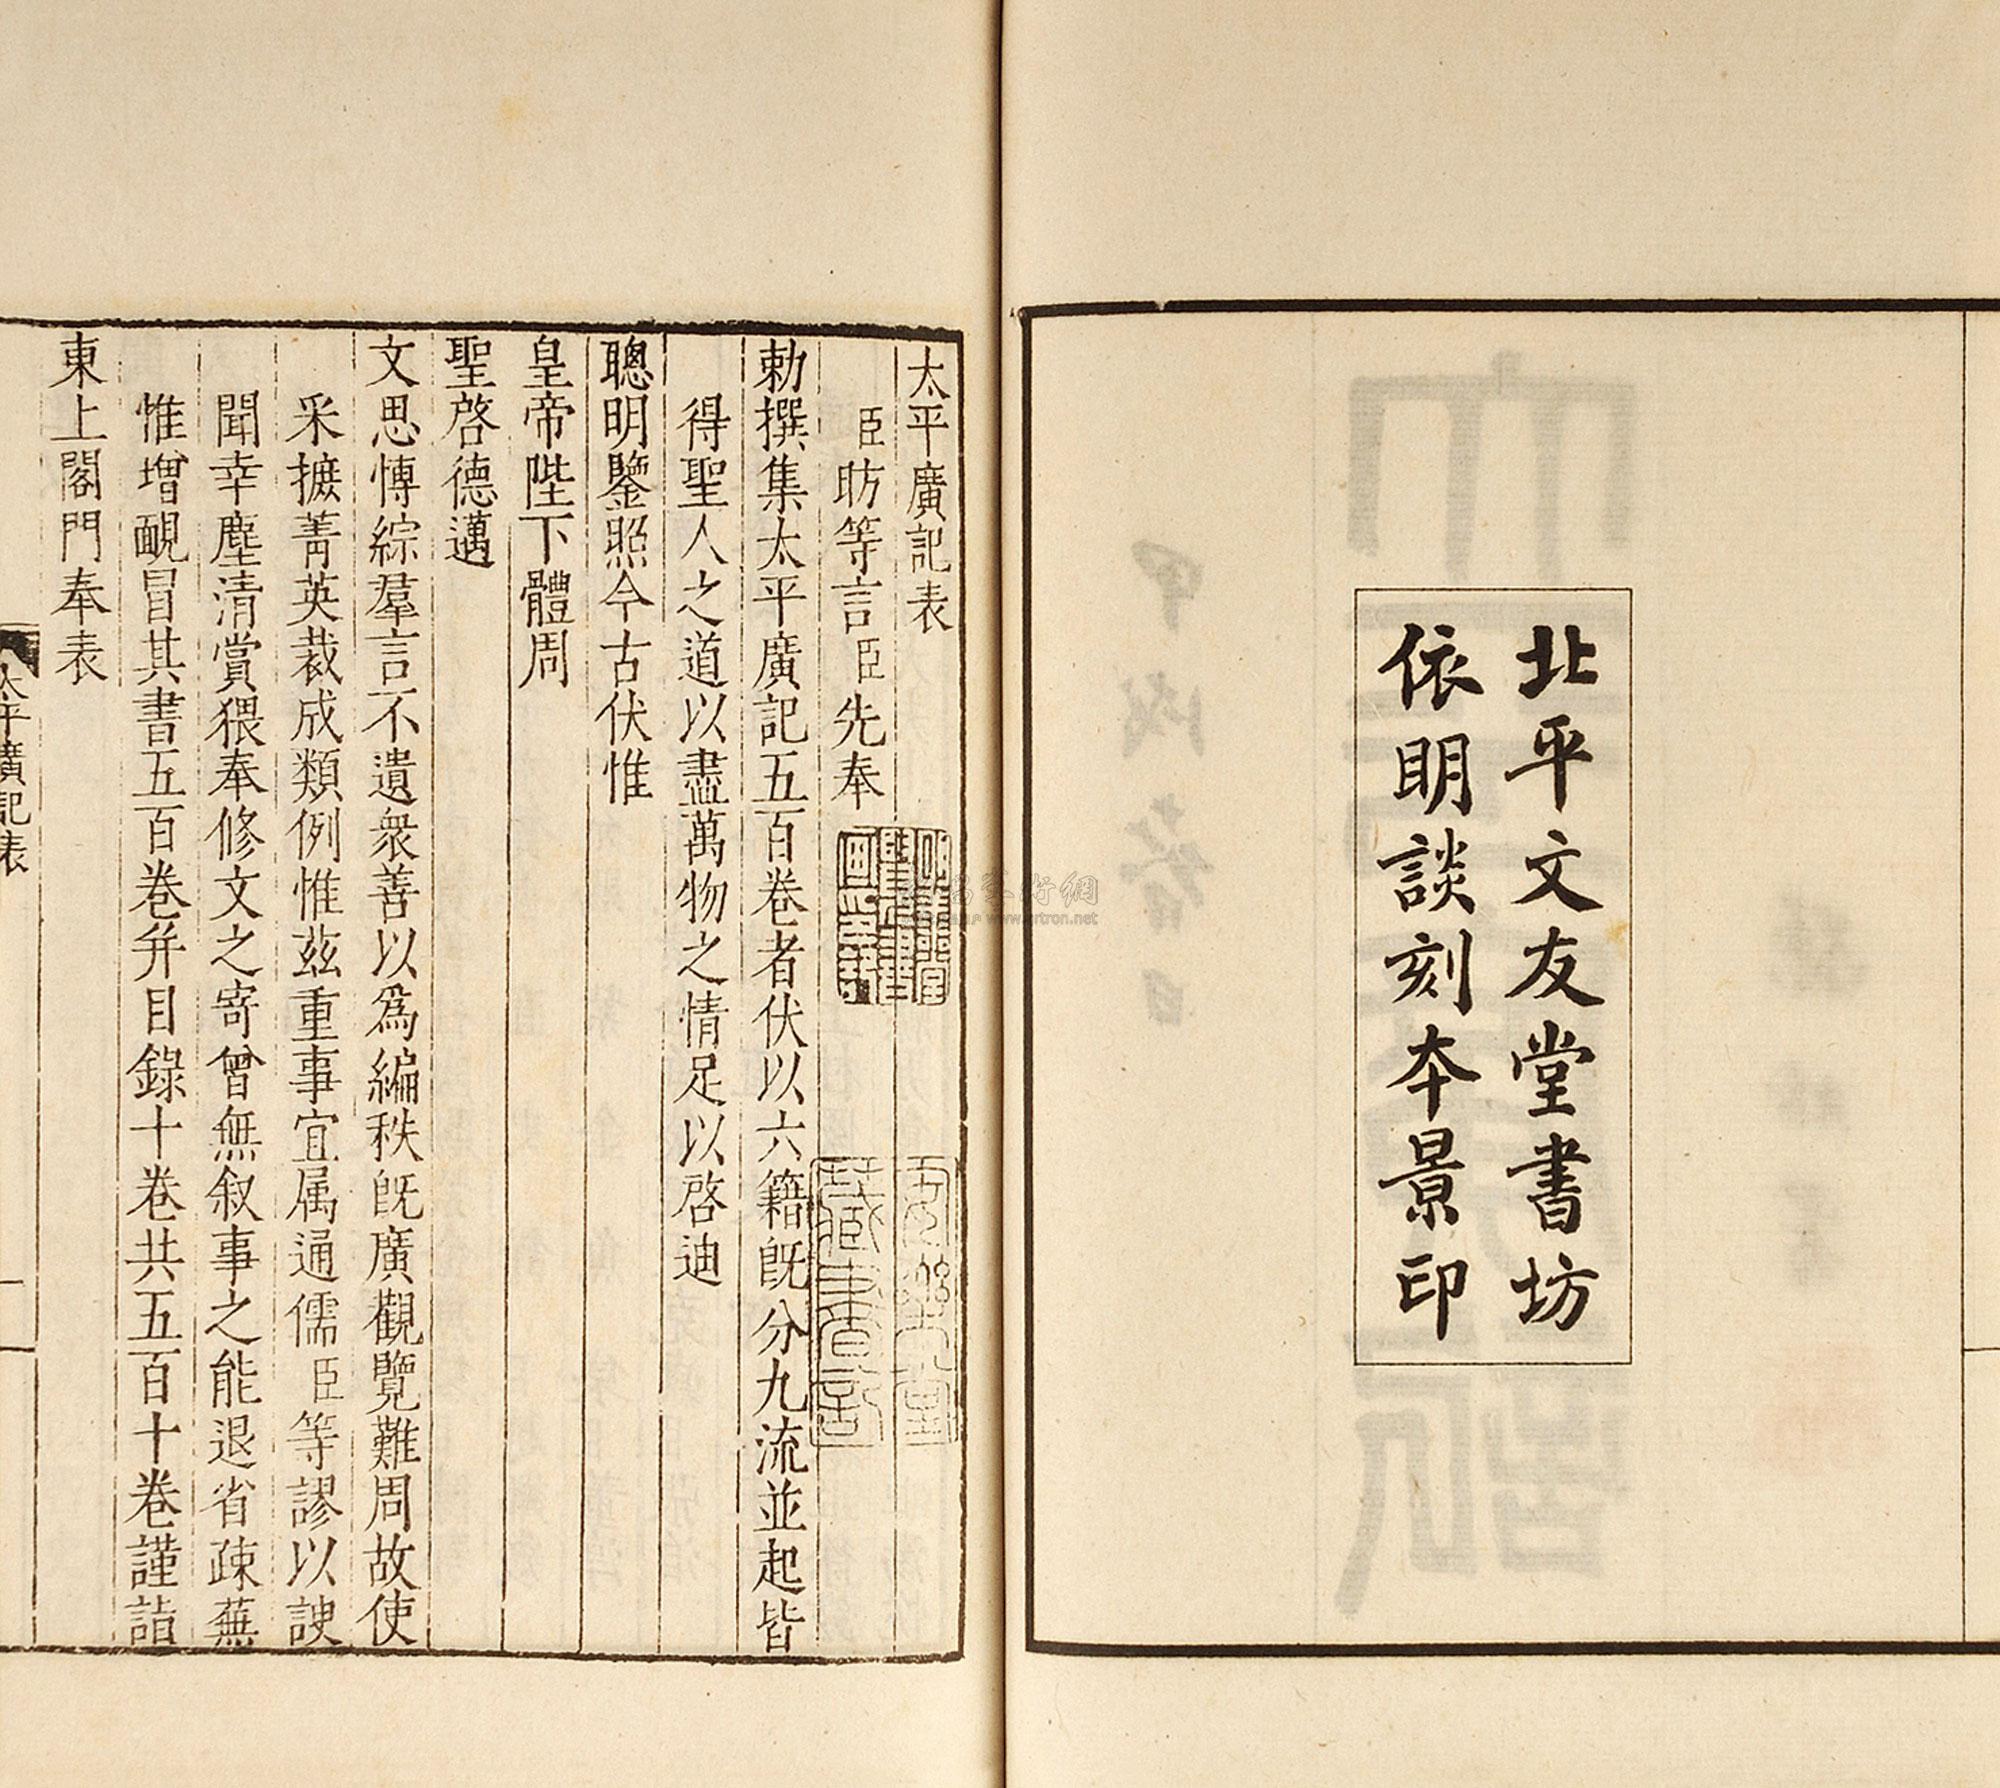 北平文友堂書坊
依明談刻本景印
太平廣記表
臣昉等言臣先奉
勅撰集太平廣記五百卷者伏以六籍旣分九流並起皆
得聖人之道以盡萬物之情足以啓迪
聰明鑒照今古伏惟
皇帝陛下體周
聖啓德邁
文思博綜羣言不遺衆善以爲編秩旣廣觀覽難周故使
采摭菁英裁成類例惟茲重事宜属通儒臣等謬以諛
聞幸塵清賞猥奉修文之寄曾無叙事之能退省疎蕪
惟增靦冒其書五百卷并目錄十卷共五百十卷謹詣
東上閤門奉表
太平廣記表
www.artron.net